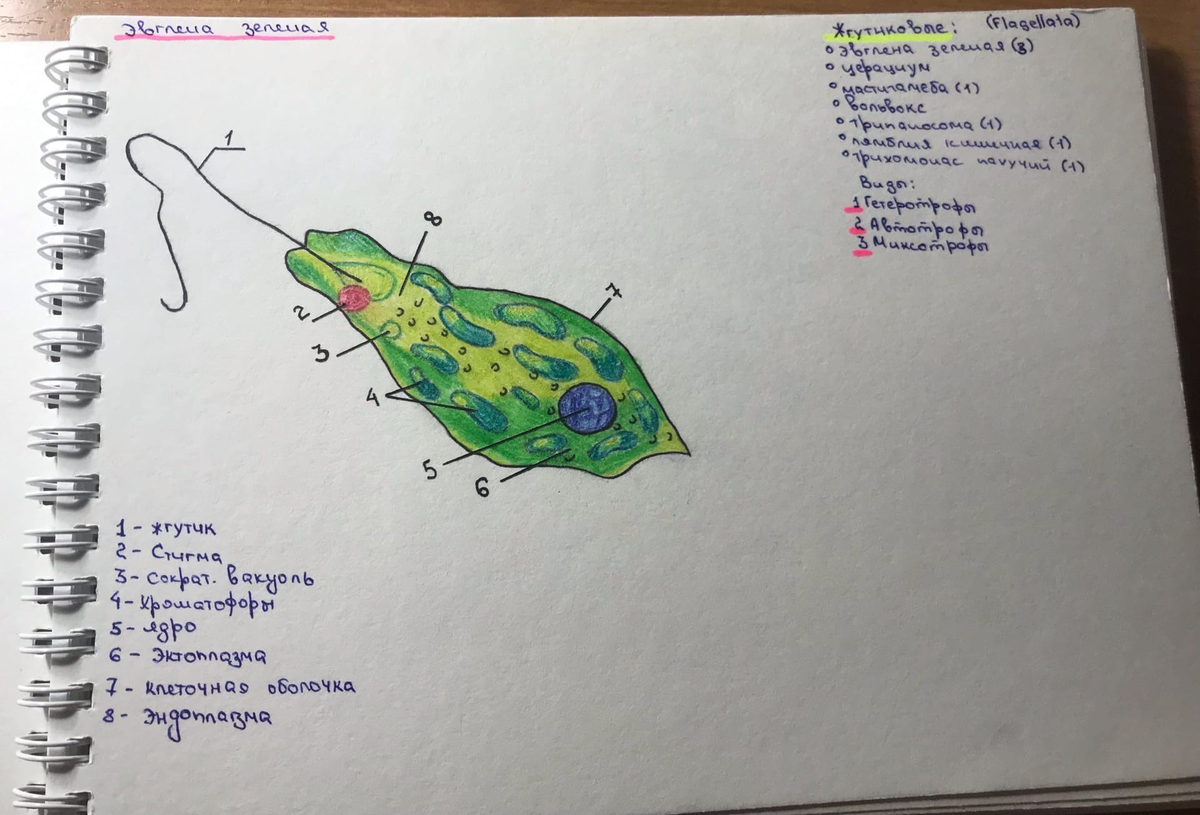 Эвглена зеленая
1
2
3
4
5
6
7
8
1 - жгутик
2 - Стигма
3 - Сократ. вакуоль
4 - Хроматофоры
5 - ядро
6 - Эктоплазма
7 - клеточная оболочка
8 - Эндоплазма
Жгутиковые: (Flagellata)
эвглена зеленая (3)
церациум
мастигамеба (1)
вольвокс
трипаносома (1)
лямблия кишечная (1)
трихомонас
Виды:
1 Гетеротрофы
2 Автотрофы
3 Миксотрофы